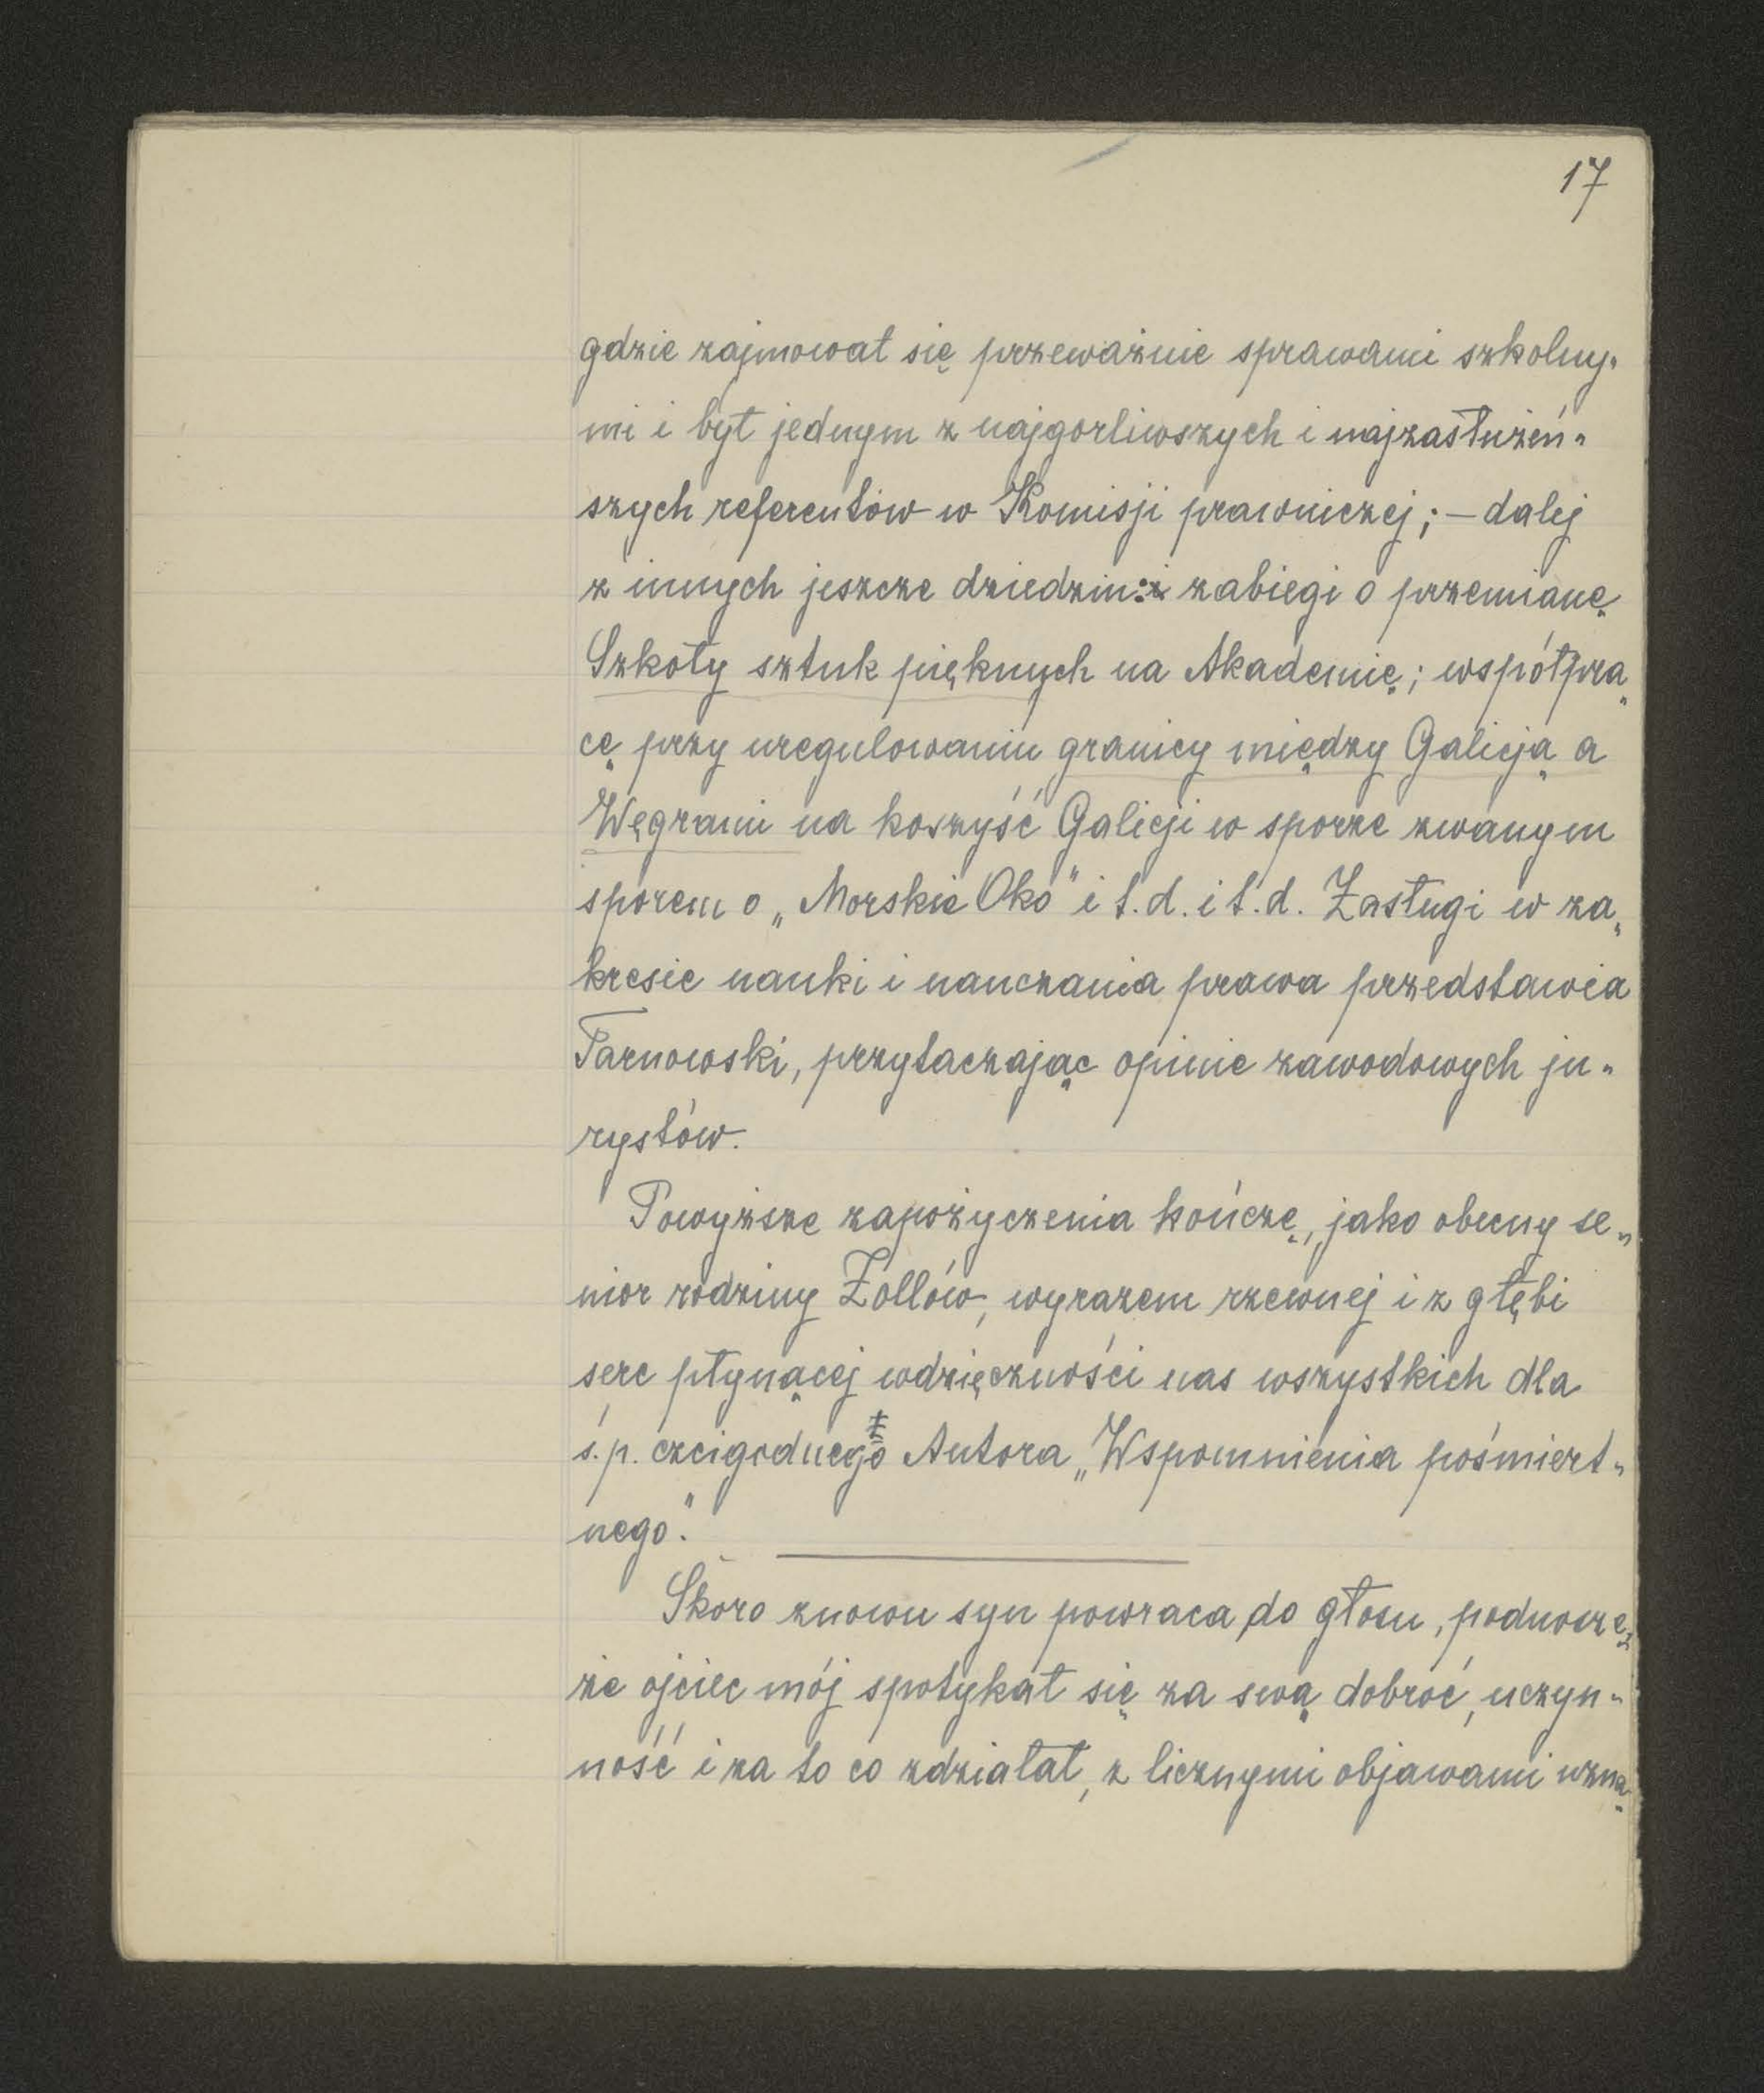 17
gdzie zajmował się przeważnie sprawami szkolny„
mi i był jednym z najgorliwszych i najzasłużeń„
szych referentów w Komisji prawniczej; – dalej
z innych jeszcze dziedzin: zabiegi o przemianę
Szkoły sztuk pięknych na Akademię; współpra„
cę przy uregulowaniu granicy między Galicją a
Węgrami na korzyść Galicji w sporze zwanym
sporem o „Morskie Oko" i t.d. i t.d. Zasługi w za„
kresie nauki i nauczania prawa przedstawia
Tarnowski, przytaczając opinie zawodowych ju„
rystów.
Powyższe zapożyczenia kończę, jako obecny se„
nior rodziny Zollów, wyrazem rzewnej i z głębi
serc płynącej wdzięczności nas wszystkich dla
ś.p. czcigodnego Autora „Wspomnienia pośmiert„
nego".
Skoro znowu syn powraca do głosu, podnoszę,
że ojciec mój spotykał się za swą dobroć, uczyn„
ność i za to co zdziałał, z licznymi objawami uzna„